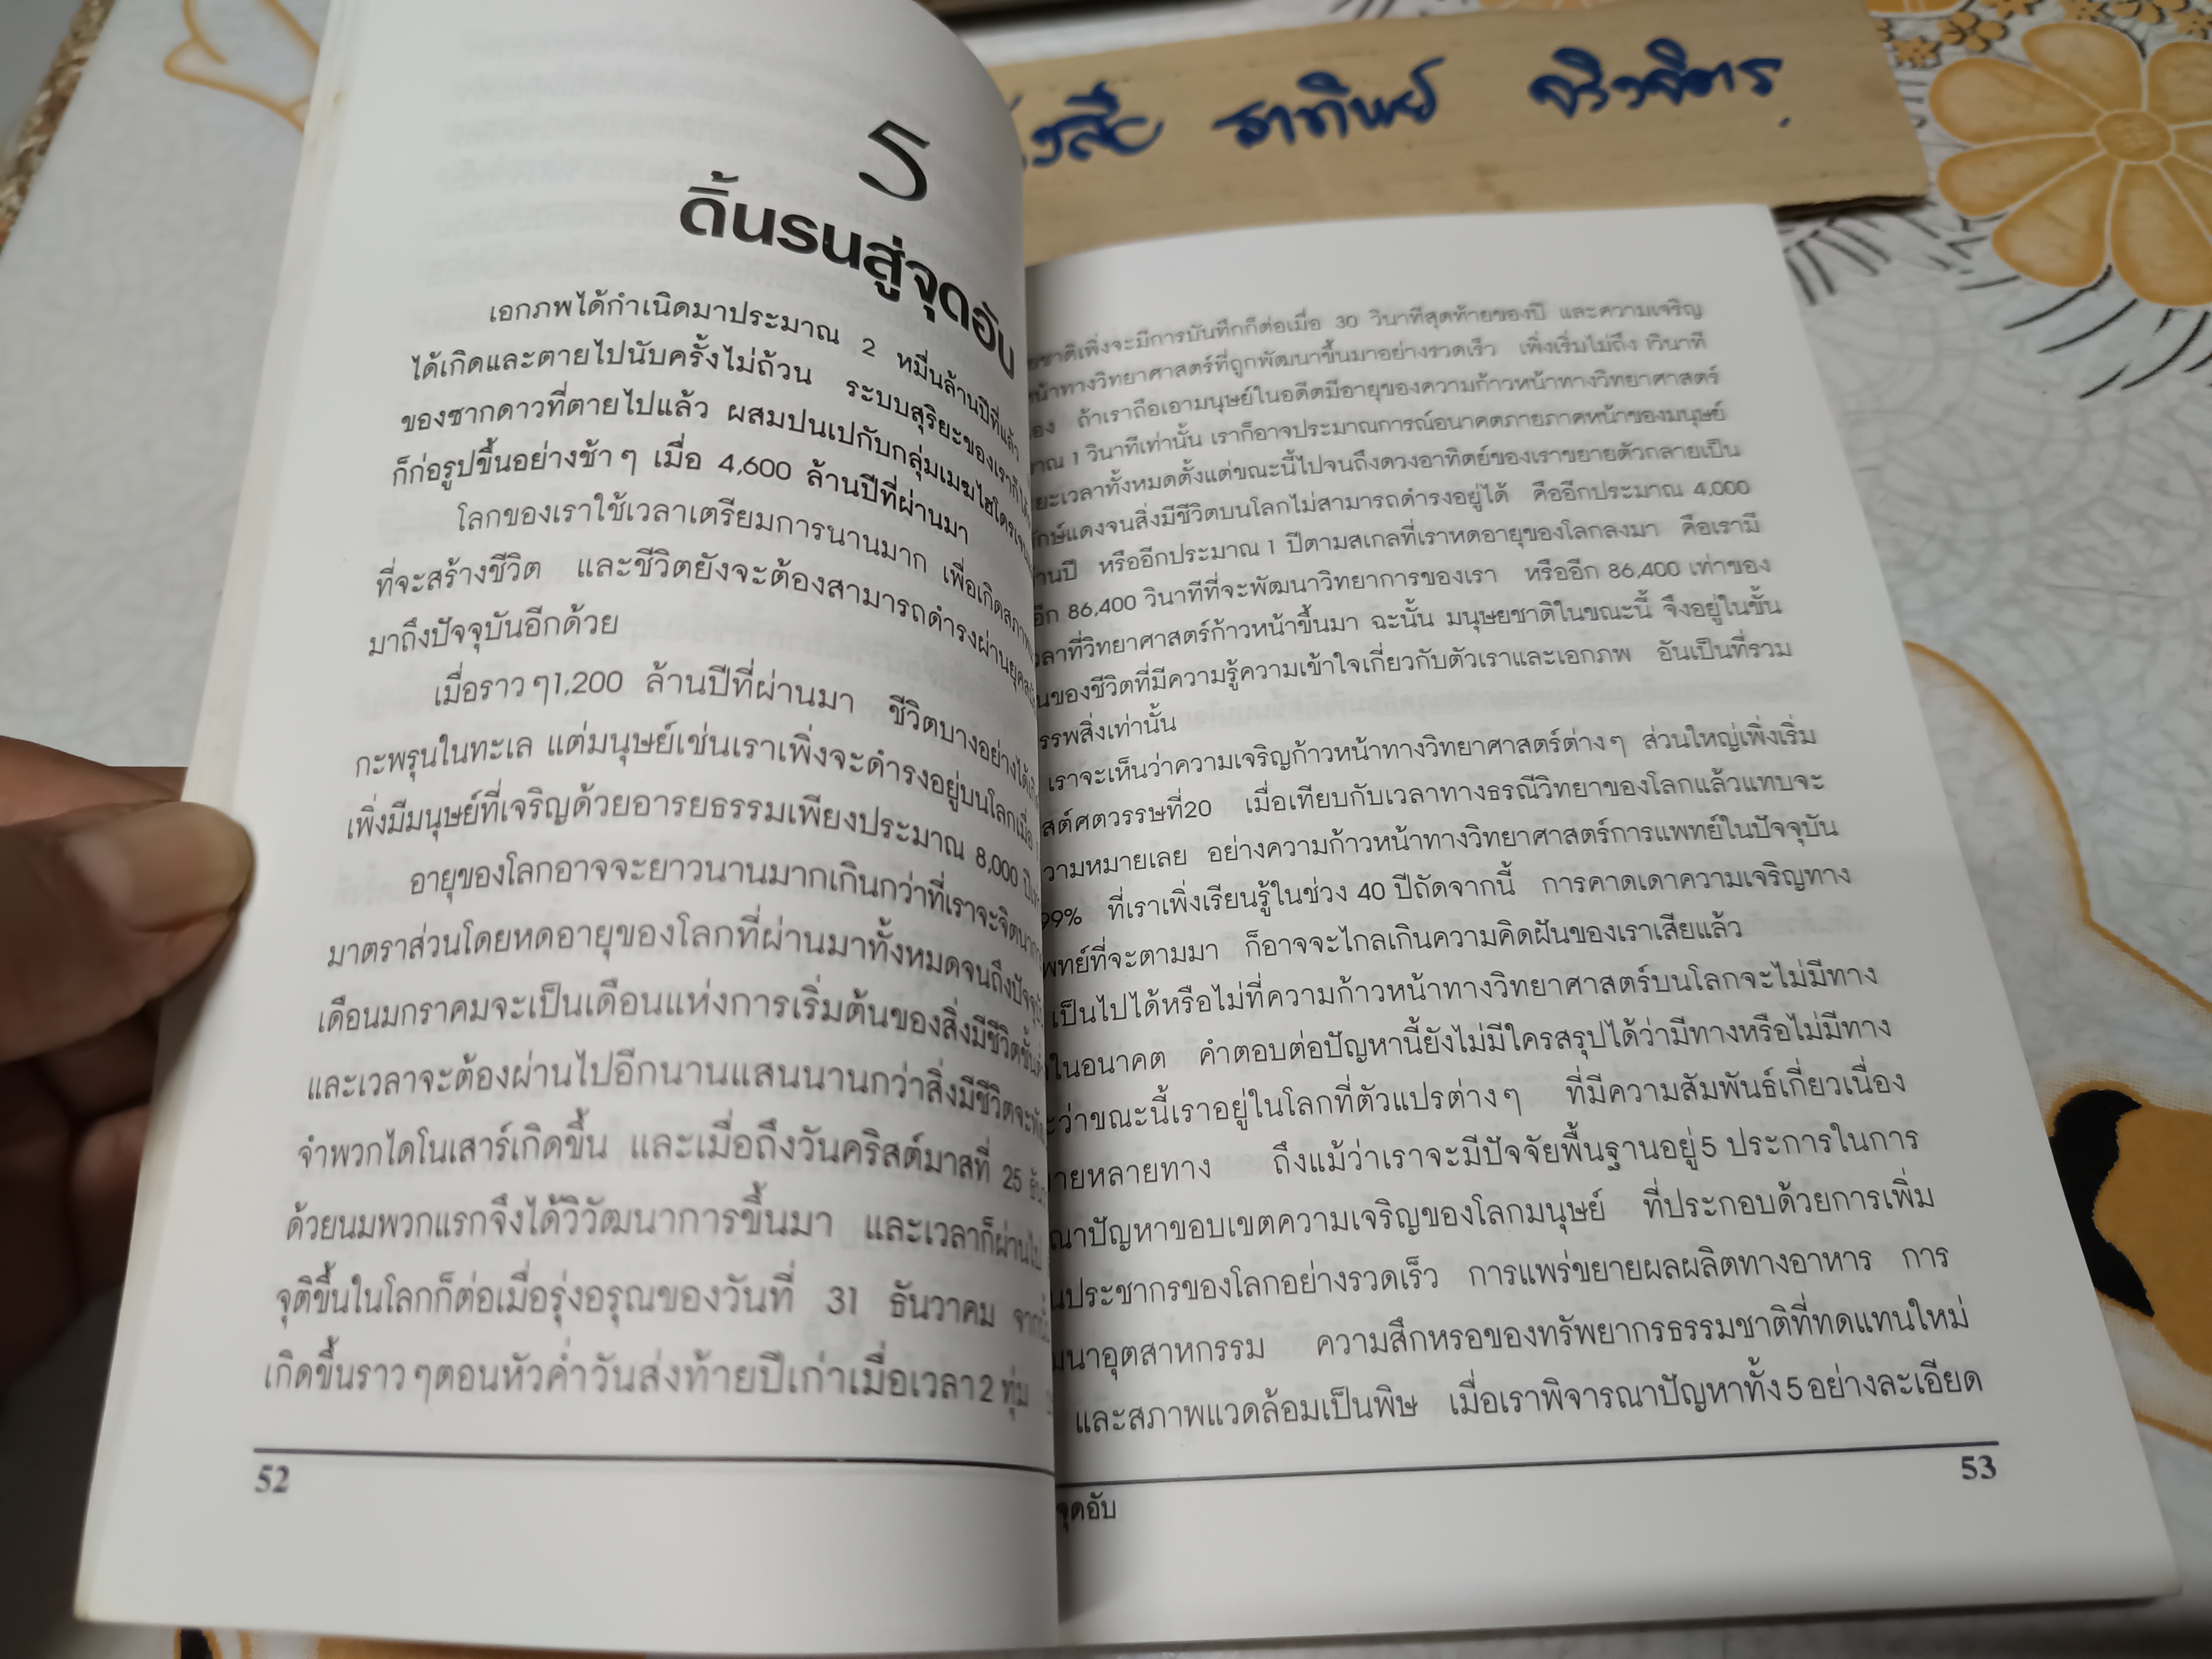 ธาทิพย์
5
ดิ้นรนสู่จุดอับ
เอกภพได้กำเนิดมาประมาณ 2 หมื่นล้านปีที่แล้ว
ได้เกิดและตายไปนับครั้งไม่ถ้วน ระบบสุริยะของเราก็
ของซากดาวที่ตายไปแล้ว ผสมปนเปกับกลุ่มเมฆไฮโดรเจน
ก็ก่อรูปขึ้นอย่างช้า ๆ เมื่อ 4,600 ล้านปีที่ผ่านมา
โลกของเราใช้เวลาเตรียมการนานมาก เพื่อเกิดสภาพ
ที่จะสร้างชีวิต และชีวิตยังจะต้องสามารถดำรงผ่านยุค
มาถึงปัจจุบันอีกด้วย
เมื่อราว ๆ1,200 ล้านปีที่ผ่านมา ชีวิตบางอย่างได้
กะพรุนในทะเล แต่มนุษย์เช่นเราเพิ่งจะดำรงอยู่บนโลกเมื่อ
เพิ่งมีมนุษย์ที่เจริญด้วยอารยธรรมเพียงประมาณ 8,000 ปี
อายุของโลกอาจจะยาวนานมากเกินกว่าที่เราจะจิตนาการ
มาตราส่วนโดยหดอายุของโลกที่ผ่านมาทั้งหมดจนถึงปัจจุ
เดือนมกราคมจะเป็นเดือนแห่งการเริ่มต้นของสิ่งมีชีวิตชั้น
และเวลาจะต้องผ่านไปอีกนานแสนนานกว่าสิ่งมีชีวิตจะ
จำพวกไดโนเสาร์เกิดขึ้น และเมื่อถึงวันคริสต์มาสที่ 25
ด้วยนมพวกแรกจึงได้วิวัฒนาการขึ้นมา และเวลาก็ผ่านไป
จุติขึ้นในโลกก็ต่อเมื่อรุ่งอรุณของวันที่ 31 ธันวาคม จาก
เกิดขึ้นราว ๆตอนหัวค่ำวันส่งท้ายปีเก่าเมื่อเวลา2 ทุ่ม
52
ยชาติเพิ่งจะมีการบันทึกก็ต่อเมื่อ 30 วินาทีสุดท้ายของปี และความเจริญ
หน้าทางวิทยาศาสตร์ที่ถูกพัฒนาขึ้นมาอย่างรวดเร็ว เพิ่งเริ่มไม่ถึง 1วินาที
เอง ถ้าเราถือเอามนุษย์ในอดีตมีอายุของความก้าวหน้าทางวิทยาศาสตร์
าณ 1 วินาทีเท่านั้น เราก็อาจประมาณการณ์อนาคตภายภาคหน้าของมนุษย์
ยะเวลาทั้งหมดตั้งแต่ขณะนี้ไปจนถึงดวงอาทิตย์ของเราขยายตัวกลายเป็น
ักษ์แดงจนสิ่งมีชีวิตบนโลกไม่สามารถดำรงอยู่ได้ คืออีกประมาณ 4,000
านปี หรืออีกประมาณ 1 ปีตามสเกลที่เราหดอายุของโลกลงมา คือเรามี
อีก 86,400 วินาทีที่จะพัฒนาวิทยาการของเรา หรืออีก 86,400 เท่าของ
วลาที่วิทยาศาสตร์ก้าวหน้าขึ้นมา ฉะนั้น มนุษยชาติในขณะนี้ จึงอยู่ในขั้น
นของชีวิตที่มีความรู้ความเข้าใจเกี่ยวกับตัวเราและเอกภพ อันเป็นที่รวม
รรพสิ่งเท่านั้น
เราจะเห็นว่าความเจริญก้าวหน้าทางวิทยาศาสตร์ต่าง ๆ ส่วนใหญ่เพิ่งเริ่ม
สต์ศตวรรษที่20 เมื่อเทียบกับเวลาทางธรณีวิทยาของโลกแล้วแทบจะ
วามหมายเลย อย่างความก้าวหน้าทางวิทยาศาสตร์การแพทย์ในปัจจุบัน
99% ที่เราเพิ่งเรียนรู้ในช่วง 40 ปีถัดจากนี้ การคาดเดาความเจริญทาง
พทย์ที่จะตามมา ก็อาจจะไกลเกินความคิดฝันของเราเสียแล้ว
เป็นไปได้หรือไม่ที่ความก้าวหน้าทางวิทยาศาสตร์บนโลกจะไม่มีทาง
ในอนาคต คำตอบต่อปัญหานี้ยังไม่มีใครสรุปได้ว่ามีทางหรือไม่มีทาง
ะว่าขณะนี้เราอยู่ในโลกที่ตัวแปรต่าง ๆ ที่มีความสัมพันธ์เกี่ยวเนื่อง
ายหลายทาง ถึงแม้ว่าเราจะมีปัจจัยพื้นฐานอยู่5 ประการในการ
ณาปัญหาขอบเขตความเจริญของโลกมนุษย์ ที่ประกอบด้วยการเพิ่ม
นประชากรของโลกอย่างรวดเร็ว การแพร่ขยายผลผลิตทางอาหาร การ
นาอุตสาหกรรม ความสึกหรอของทรัพยากรธรรมชาติที่ทดแทนใหม่
และสภาพแวดล้อมเป็นพิษ เมื่อเราพิจารณาปัญหาทั้ง5อย่างละเอียด
จุดอับ
53